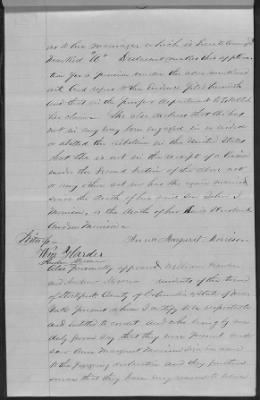 as to her marriage which is hereto annexed
marked "A". Declarant makes this applica
tion for a pension under the above mentioned
act and refers to the evidence filed herewith
and that in the proper department to establish
her claim. She also declares that she has
not in any way been engaged in or aided
or abetted the rebellion in the United States
that she is not in the receipt of a pension
under the second section of the above act
or any other act nor has she again married
since the death of her son John J
Morrison, or the death of her husband
Andrew Morrison
Ann Margaret Morrison
Witness
Wm Harder
Andrew Morrison
Also personally appeared William Harder
and Andrew Morrison residents of the town
of Stockport County of Columbia & State of New
York persons whom I certify to be respectable
and entitled to credit, and who being by me
duly sworn say that they were present and
saw Ann Margaret Morrison sign her name
to the foregoing declaration and they further
swear that they have every reason to believe